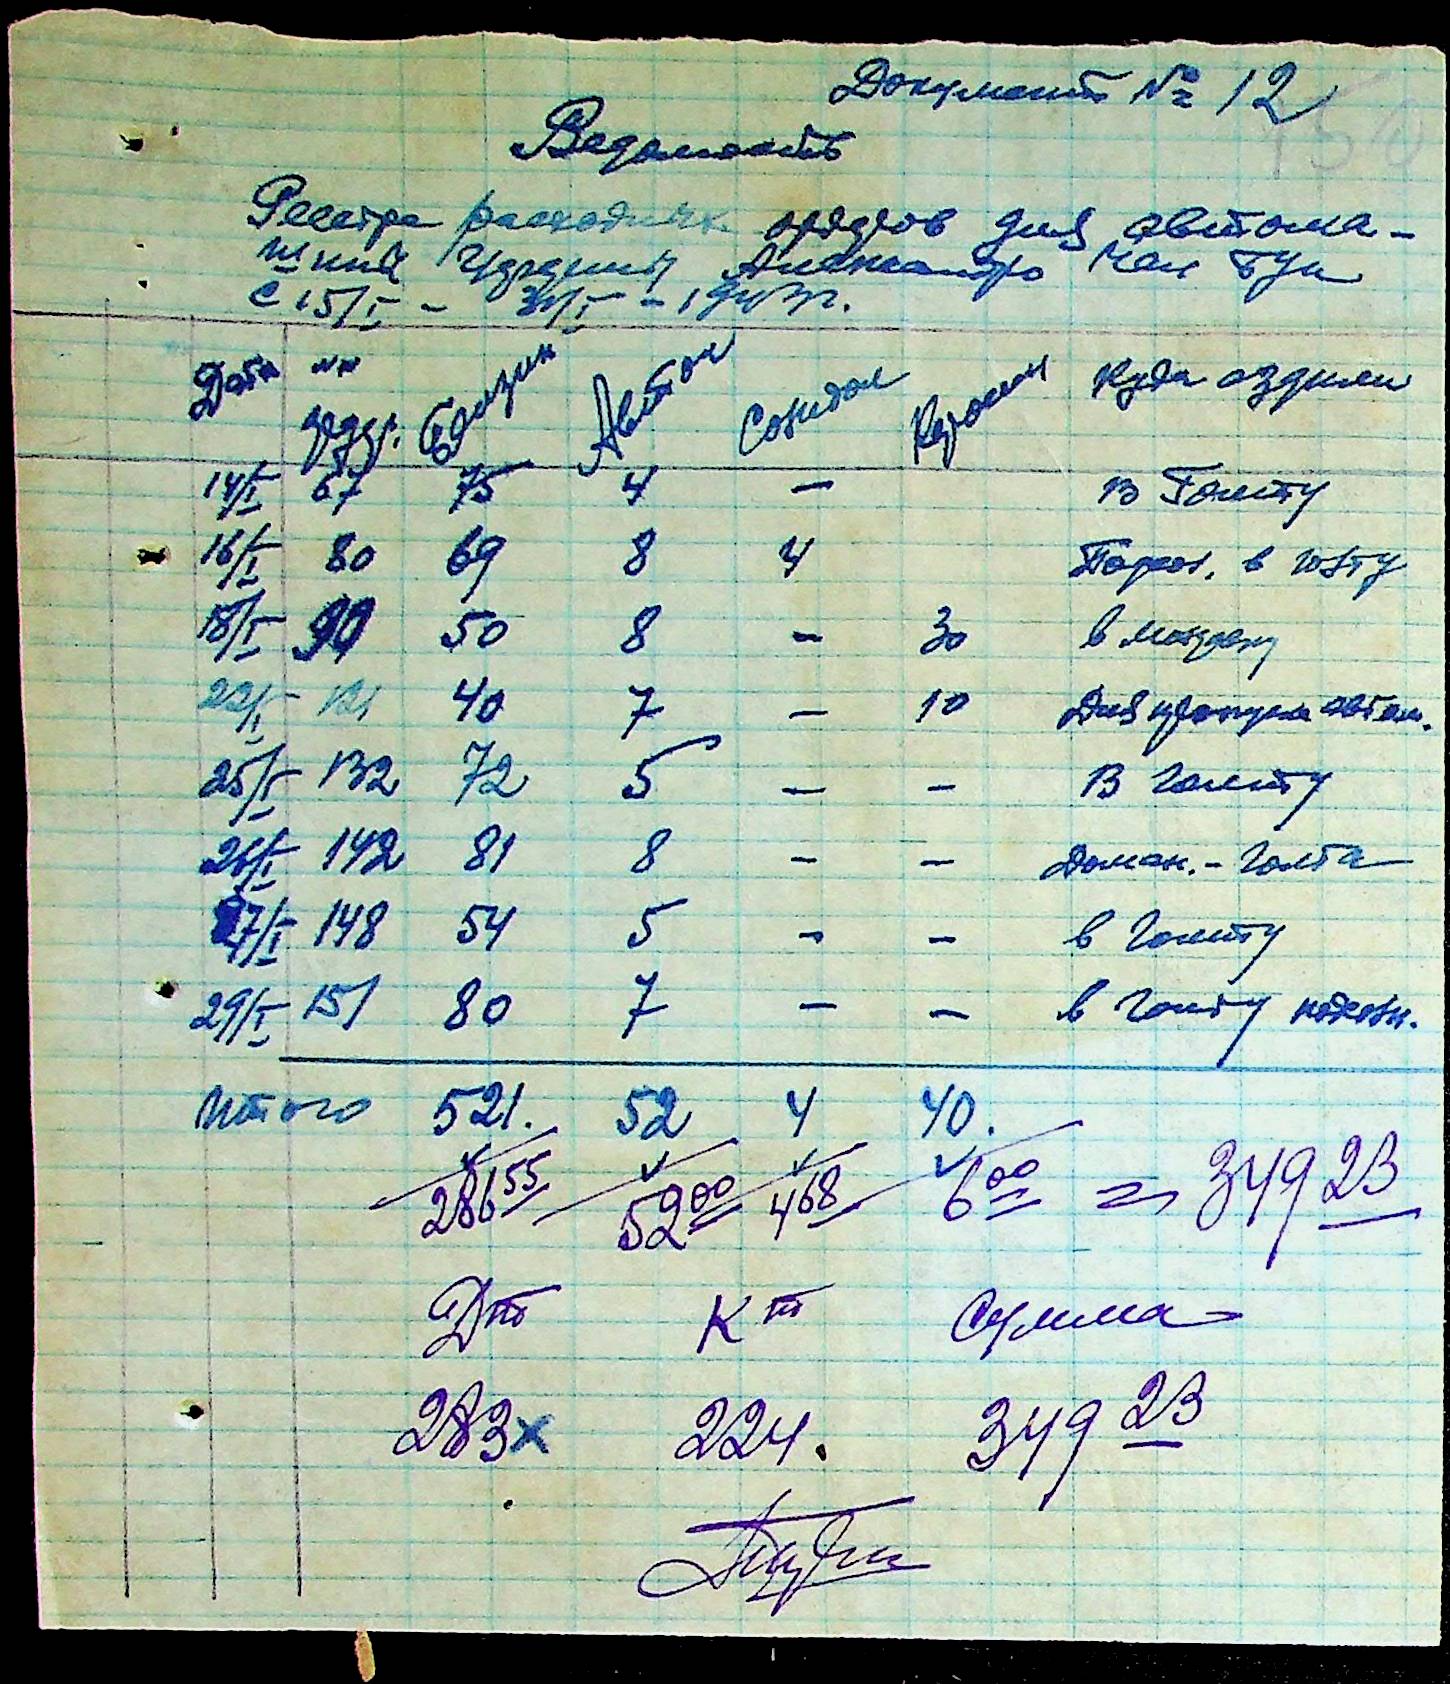 Документ № 12
150
Ведомость
Реестра расходных ордеров для автома-
шины
с 15/I - 31/I - 1943 г.
Дата №№ ордер. Бензин Автол Солидол Керосин Куда ездили
14/I 67 75 4 — в Голту
16/I 80 69 8 4 в Голту
18/I 90 50 8 — 30 в
22/I 121 40 7 — 10 Для автом.
25/I 132 72 5 — — в Голту
26/I 142 81 8 — — Доман. - Голта
27/I 148 54 5 — — в Голту
29/I 151 80 7 — — в Голту
Итого 521. 52 4 40.
286 55 52 00 4 68 6 00 = 349 23
Дт Кт Сумма
283 х 224. 349 23